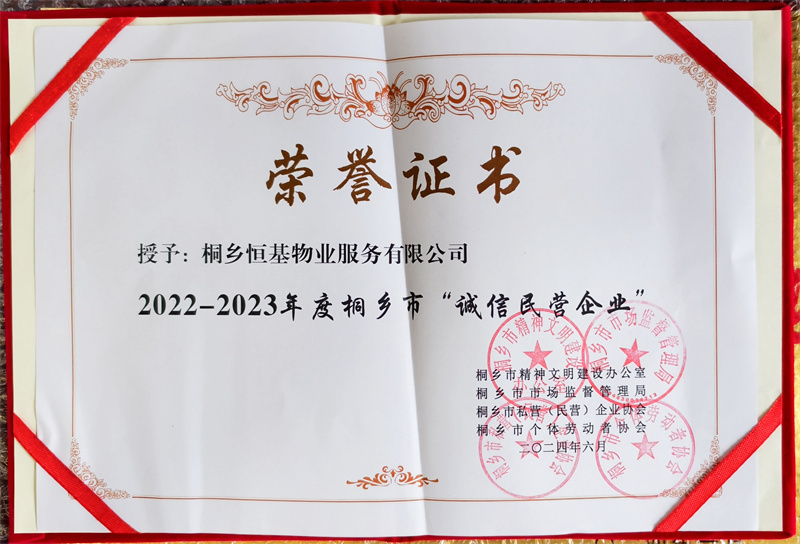 荣誉证书
授予：桐乡恒基物业服务有限公司
2022-2023年度桐乡市“诚信民营企业”
桐乡市精神文明建设办公室
桐乡市市场监督管理局
桐乡市私营（民营）企业协会
桐乡市个体劳动者协会
二〇二四年六月
桐乡市精神文明建设办公室
桐乡市市场监督管理局
桐乡市个体劳动者协会